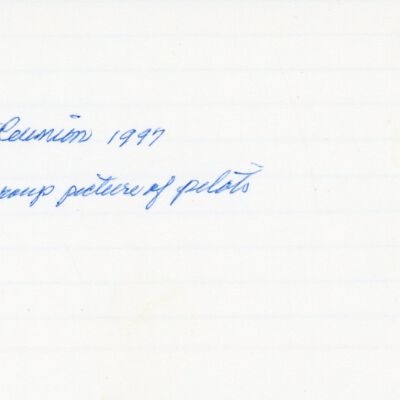 Reunion 1997
roup picture of pilots